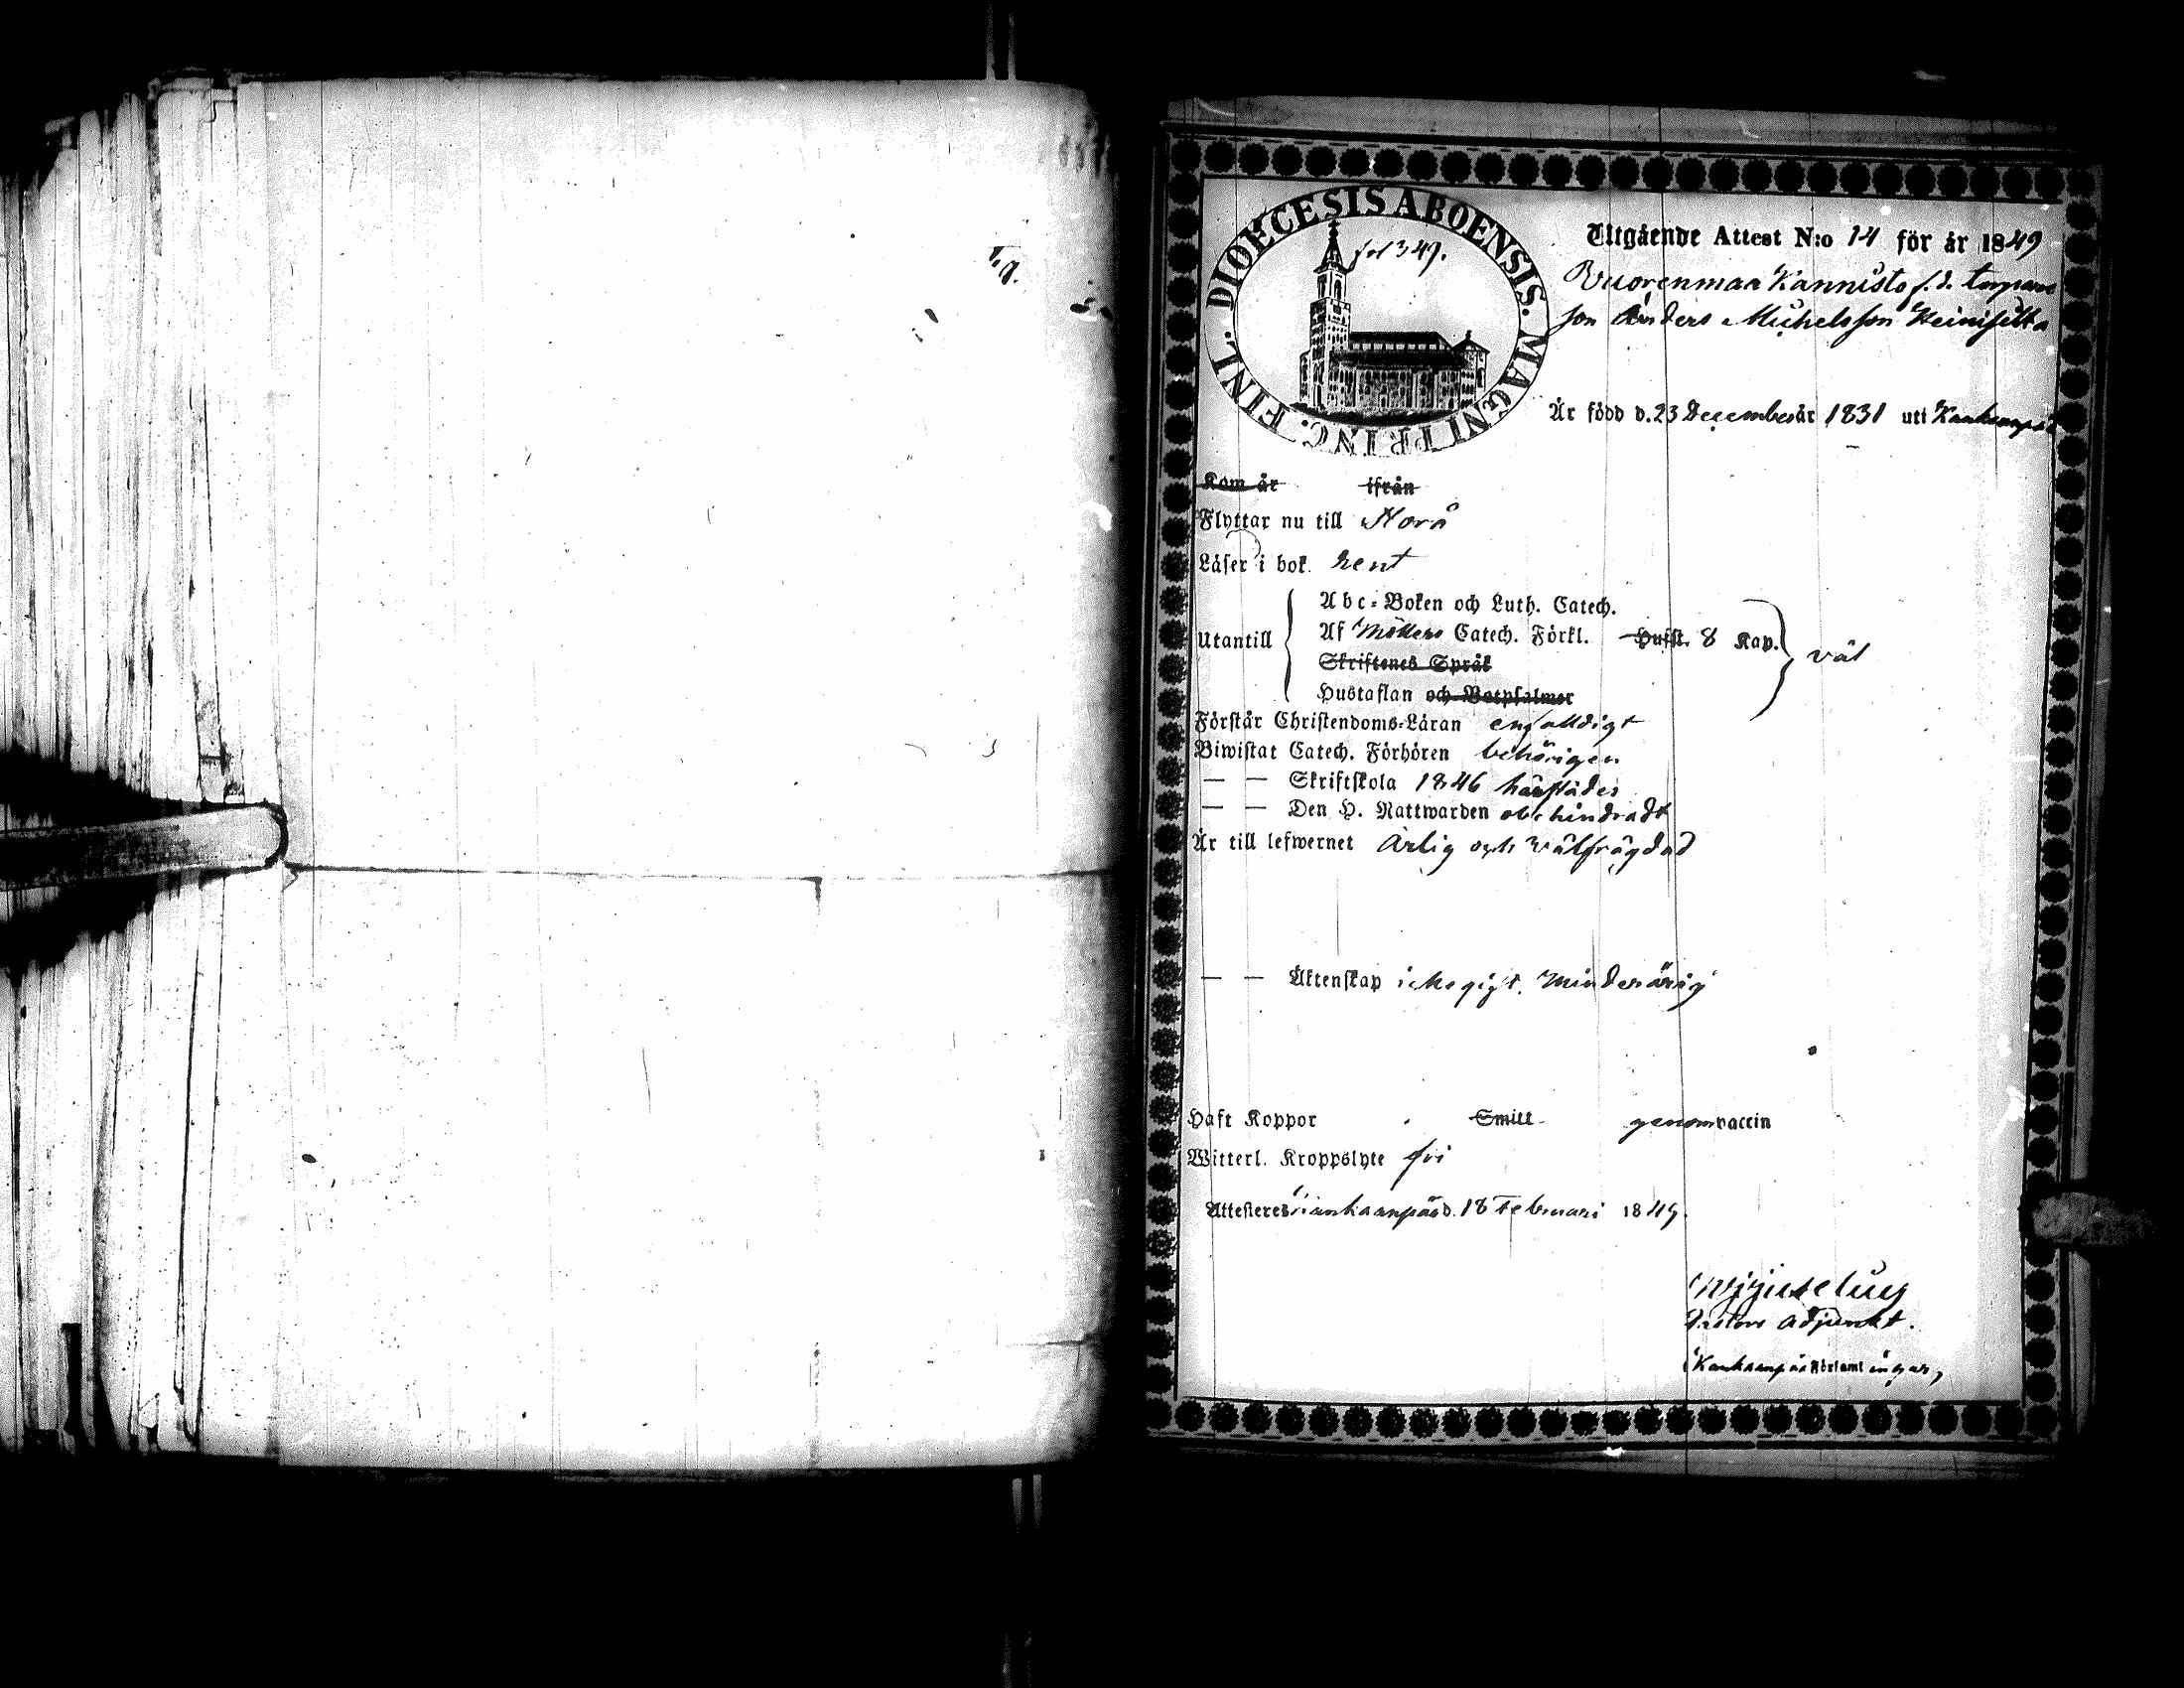 DIOECESIS ABOENSIS. MAGNI PRINC. FINL.
fol 349.
Utgående Attest N:o 14 för år 1849
Vuorenmaa Kannisto f. d. torpare
son Anders Michelsson
Är född d. 23 December år 1831 uti Kankanpää
Kom år ifrån
Flyttar nu till
Läser i bok. rent
Abc-Boken och Luth. Catech.
Utantill Af Möllers Catech. Förkl. Hufst. 8 Kap. väl
Skriftenes Språk
Hustaflan och Botpsalmer
Förstår Christendoms-Läran enfalldigt
Biwistat Catech. Förhören behörigen
— — Skriftskola 1846 härstädes
— — Den H. Nattwarden obehindradt
Är till lefwernet Ärlig och välfrägdad
— — Äktenskap icke gift. Minderårig
Haft Koppor Smitt genom vaccin
Witterl. Kroppslyte fri
Attesteres Kankaanpää d. 18 Februari 1849.
Pastors Adjunkt.
Kankaanpää Församlingar,